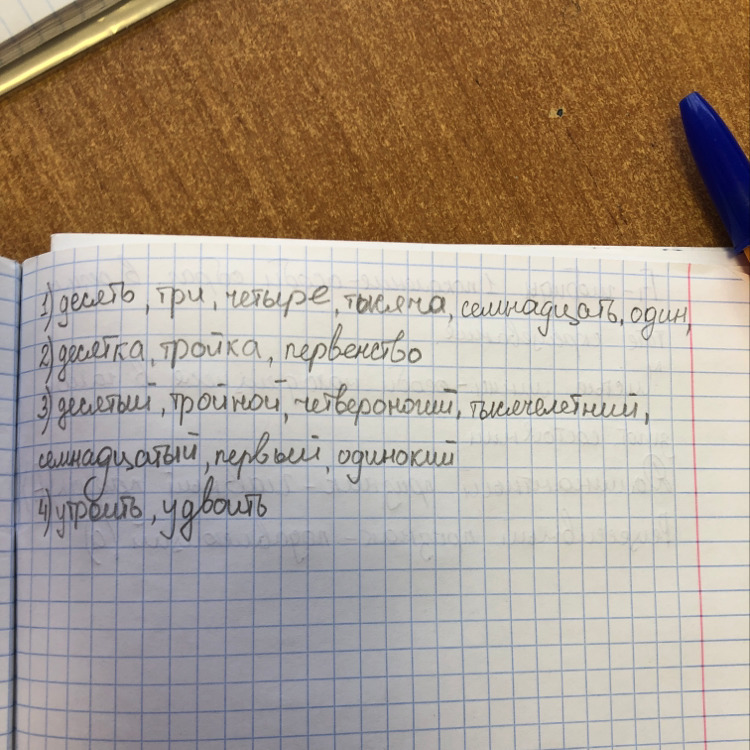 1) десять, три, четыре, тысяча, семнадцать, один,
2) десятка, тройка, первенство
3) десятый, тройной, четвероногий, тысячелетний,
семнадцатый, первый, одинокий
4) утроить, удвоить